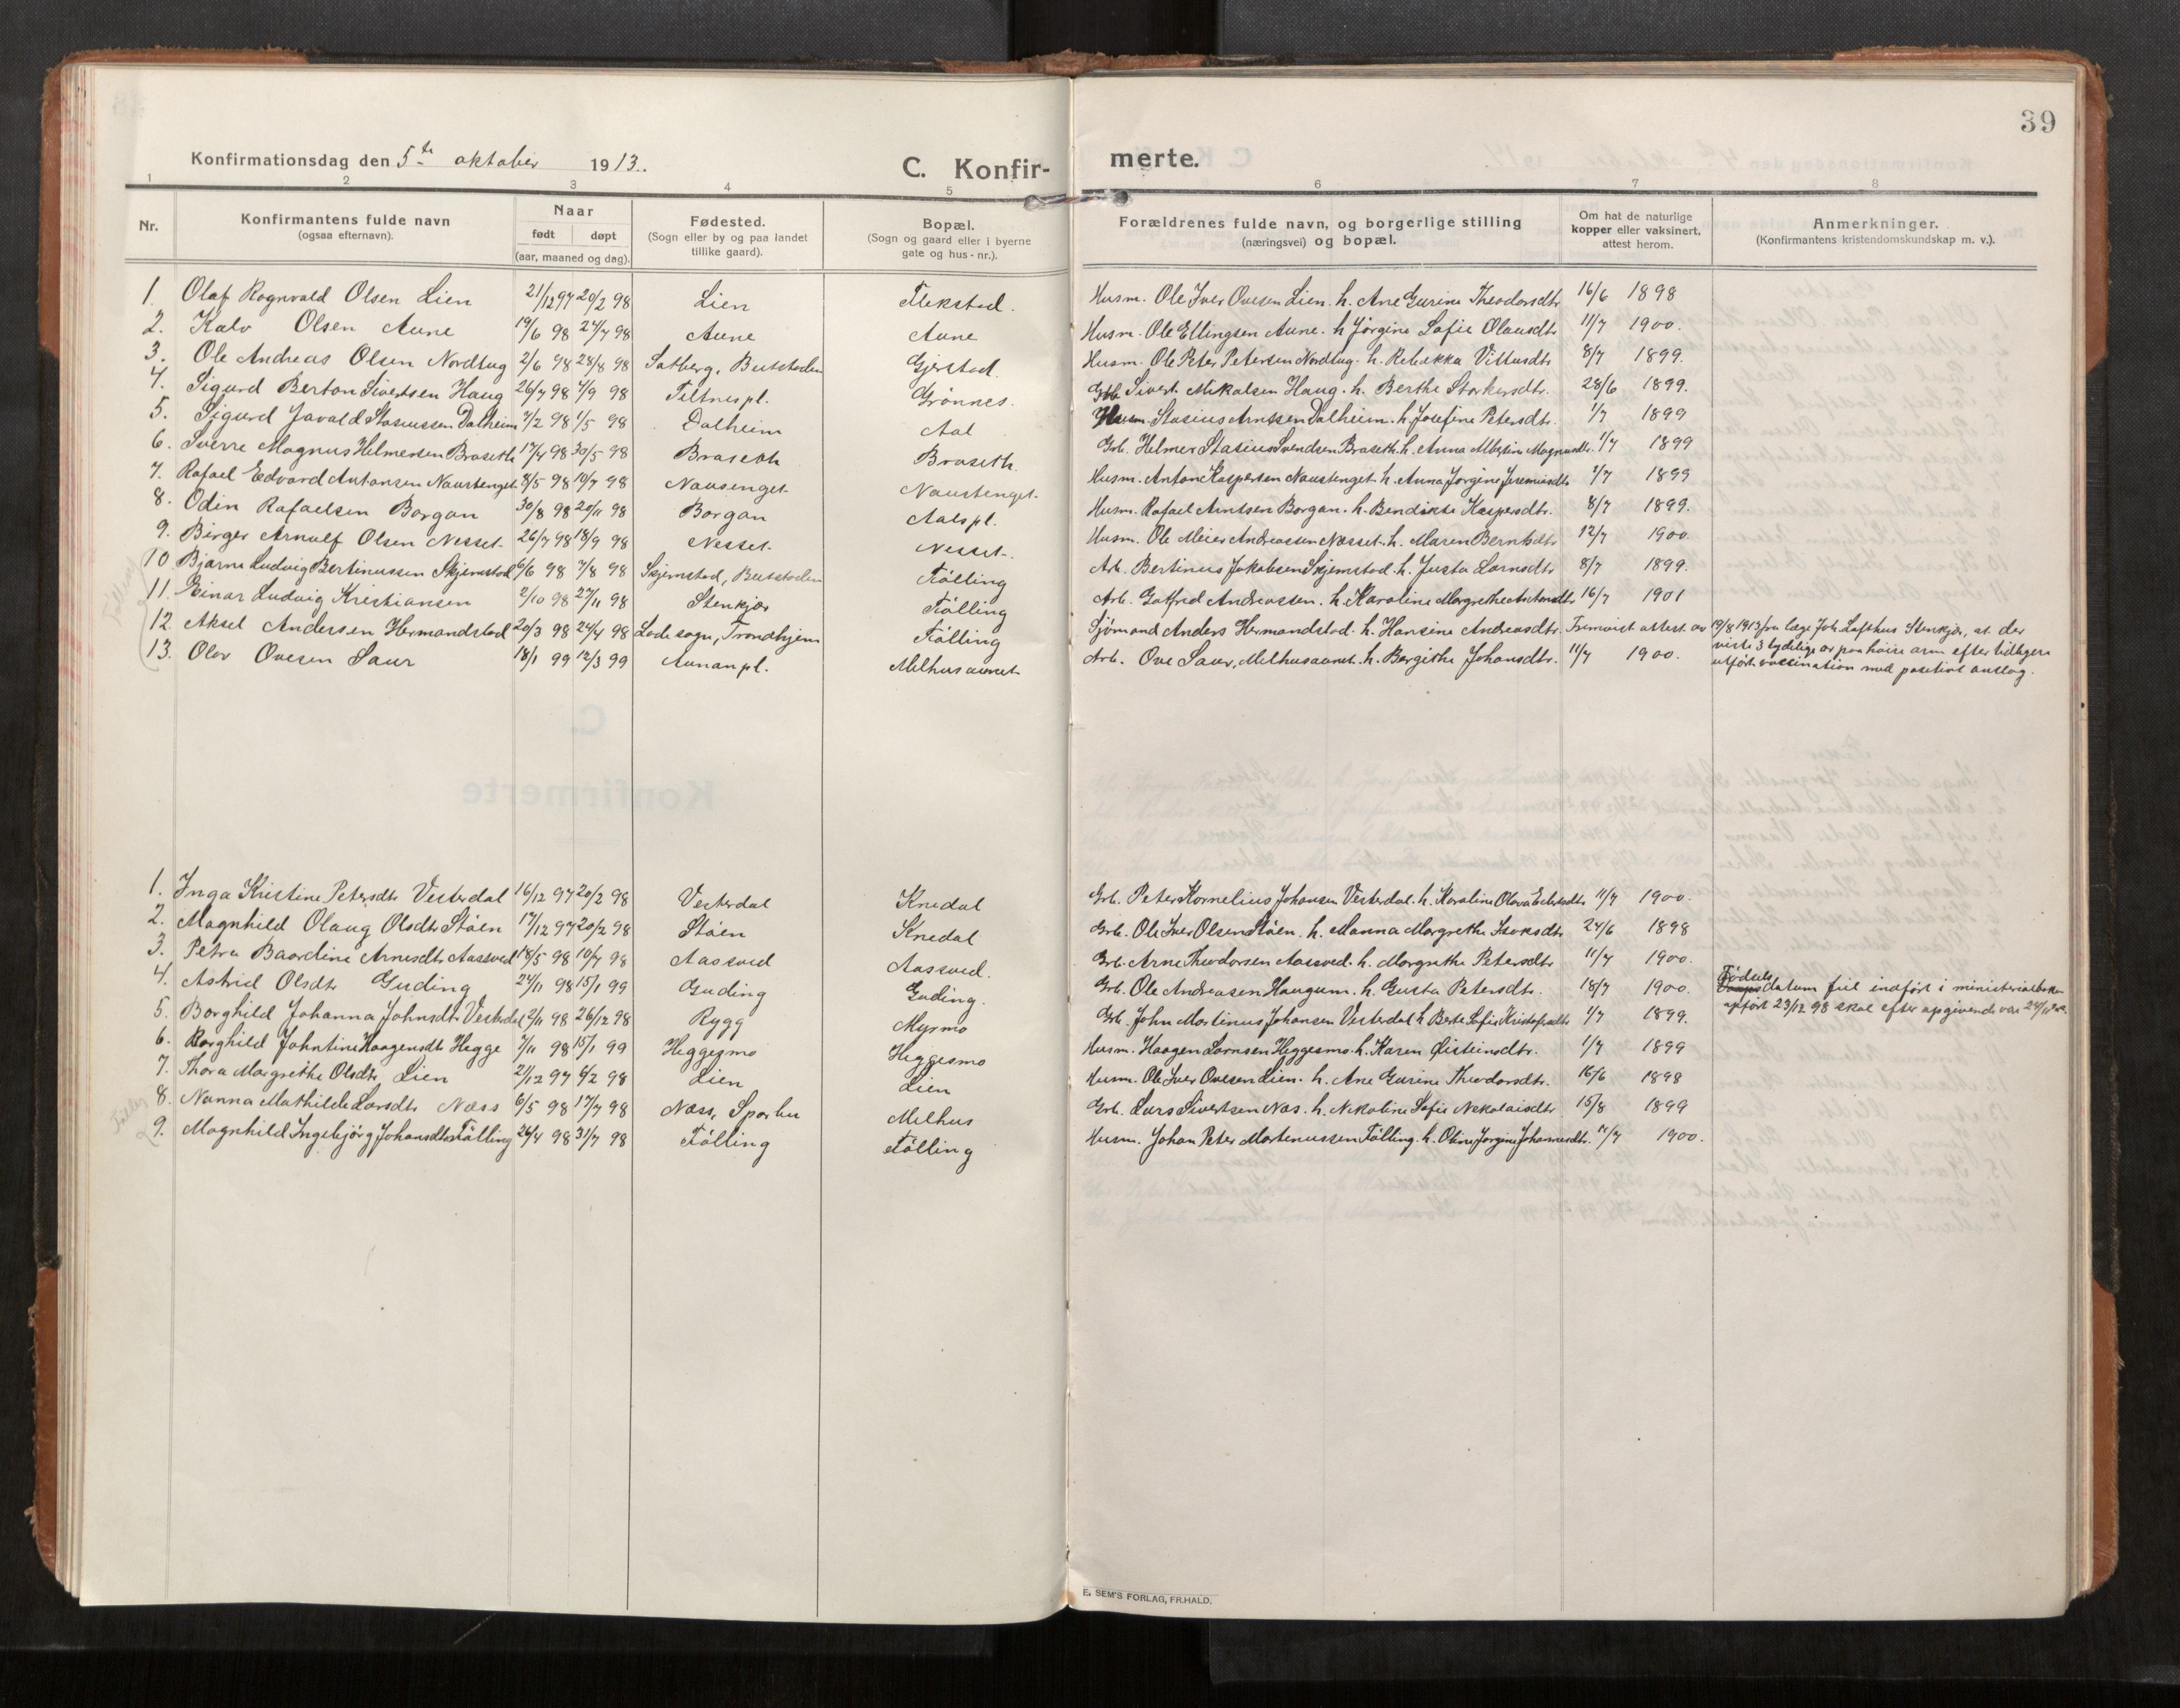 39
Konfirmationsdag den 5te oktober 1913.
C. Konfir-
merte.
1 2 3 4 5 6 7 8
Nr.
Konfirmantens fulde navn
(ogsaa efternavn).
Naar
født døpt
(aar, maaned og dag).
Fødested.
(Sogn eller by og paa landet
tillike gaard).
Bopæl.
(Sogn og gaard eller i byerne
gate og hus-nr.).
Forældrenes fulde navn, og borgerlige stilling
(næringsvei) og bopæl.
Om hat de naturlige
kopper eller vaksinert,
attest herom.
Anmerkninger.
(Konfirmantens kristendomskundskap m. v.).
1. Olaf Rognvald Olsen Lien 21/12 97 20/2 98 Lien Flekstad. Husm. Ole Iver Ovesen Lien. h. Ane Gurine Theodorsdtr 16/6 1898
2. Kalv Olsen Aune 19/6 98 24/7 98 Aune Aune Husm. Ole Ellingsen Aune. h Jörgine Sofie Olausdtr 11/7 1900.
3. Ole Andreas Olsen Nordtug 2/6 98 28/8 98 Satberg, Beitstaden Gjerstad. Husm. Ole Peter Petersen Nordtug. h. Rebekka Vittusdtr 8/7 1899.
4. Sigurd Berton Sivertsen Haug 26/7 98 4/9 98 Tiltnes pl. Grönnes. Grb. Sivert Mikalsen Haug. h. Berthe Storkersdtr. 28/6 1899.
5. Sigurd Javald Stasiussen Dalheim 7/2 98 1/5 98 Dalheim Aal Husm. Stasius Arntsen Dalheim. h. Josefine Petersdtr. 1/7 1899
6. Sverre Magnus Helmersen Braseth 17/4 98 30/5 98 Braseth Braseth. Grb. Helmer Stasius Svendsen Braseth. h. Anna Albertine Magnusdtr. 1/7 1899
7. Rafael Edvard Antonsen Naustenget 8/5 98 10/7 98 Nausenget. Naustenget. Husm. Anton Kaspersen Naustenget h. Anna Jörgine Jeremiasdtr 1/7 1899
8. Odin Rafaelsen Borgan 30/8 98 20/11 98 Borgan Aals pl. Husm. Rafael Arntsen Borgan. h. Bendikte Kaspersdtr. 8/7 1899.
9. Birger Arnulf Olsen Nesset. 26/7 98 18/9 98 Nesset. Nesset. Husm. Ole Meier Andreassen Næsset. h. Maren Berntsdtr 12/7 1900.
10 Bjarne Ludvig Bertinussen Skjemstad 6/6 98 7/8 98 Skjemstad, Beitstaden Fölling Arb. Bertinus Jakobsen Skjemstad. h. Justa Larnsdtr 8/7 1899.
11. Einar Ludvig Kristiansen 2/10 98 27/11 98 Stenkjær Fölling Arb. Gotfred Andreassen. h. Karoline Margrethe Antonsdtr 16/7 1901
12. Aksel Andersen Hermandstad 20/3 98 24/4 98 Lade sogn, Trondhjem Fölling Sjömand Anders Hermandstad. h. Hansine Andreasdtr. Fremvist attest av 19/8 1913 fra læge Joh. Lofthus Stenkjær, at der
viste 3 tydelige ar paa höire arm efter tidligere
utfört vaccination med positivt anslag.
13. Olav Ovesen Saur 18/1 99 12/3 99 Aunan pl. Melhusaunet Arb. Ove Saur, Melhusaunet. h. Bergithe Johansdtr. 11/7 1900.
1. Inga Kristine Petersdtr Vesterdal 16/12 97 20/2 98 Vesterdal Knedal Grb. Peter Kornelius Johansen Vesterdal. h. Karoline Olava 11/7 1900.
2. Magnhild Olaug Olsdtr Stöen 17/12 97 20/2 98 Stöen Knedal Grb. Ole Iver Olsen Stöen. h. Manna Margrethe Isaksdtr 24/6 1898
3. Petra Baardine Arnesdtr Aassved 18/5 98 10/7 98 Aassved Aassved. Grb. Arne Theodorsen Aassved. h. Margrethe Petersdtr 11/7 1900.
4. Astrid Olsdtr Guding 24/11 98 15/1 99 Guding Guding. Grb. Ole Andreasen Haugum. h. Gusta Petersdtr. 18/7 1900. Födselsdatum feil indfört i ministerialboken
opfört 23/12 98 skal efter opgivende være 24/11 98.
5. Borghild Johanna Johnsdtr Vesterdal 2/11 98 26/12 98 Rygg Myrmo Grb. John Martinus Johansen Vesterdal h Berte Sofie Kristofersdtr 1/7 1899.
6. Borghild Johntine Haagensdtr Hegge 7/11 98 15/1 99 Heggesmo Heggesmo Husm. Haagen Larnsen Heggesmo. h. Karen Øisteinsdtr. 1/7 1899
7. Thora Margrethe Olsdtr Lien 21/12 97 6/2 98 Lien Lien Husm. Ole Iver Ovesen Lien. h. Ane Gurine Theodorsdtr. 16/6 1898
8. Nanna Mathilde Larsdtr Næss 6/5 98 17/7 98 Næss, Sparbu Melhus Grb. Lars Sivertsen Næs. h. Nikoline Sofie Nikolaisdtr 15/8 1899
9. Magnhild Ingebjörg Johansdtr Fölling 26/4 98 31/7 98 Fölling Fölling Husm. Johan Peter Martinussen Fölling. h. Oline Jörgine Johannesdtr. 11/7 1900.
E. SEM'S FORLAG, FR.HALD.